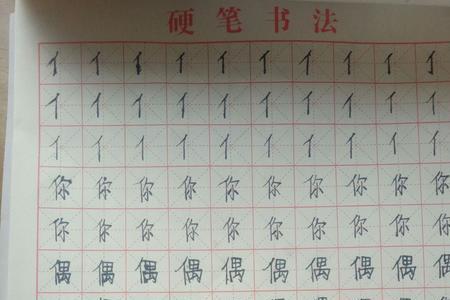 硬笔书法
亻亻亻亻亻亻亻亻亻亻
亻亻亻亻亻亻亻亻亻亻
亻亻亻亻亻亻亻亻亻亻
你你你你你你你你你你
你你你你你你你你你你
偶偶偶偶偶偶偶偶偶偶